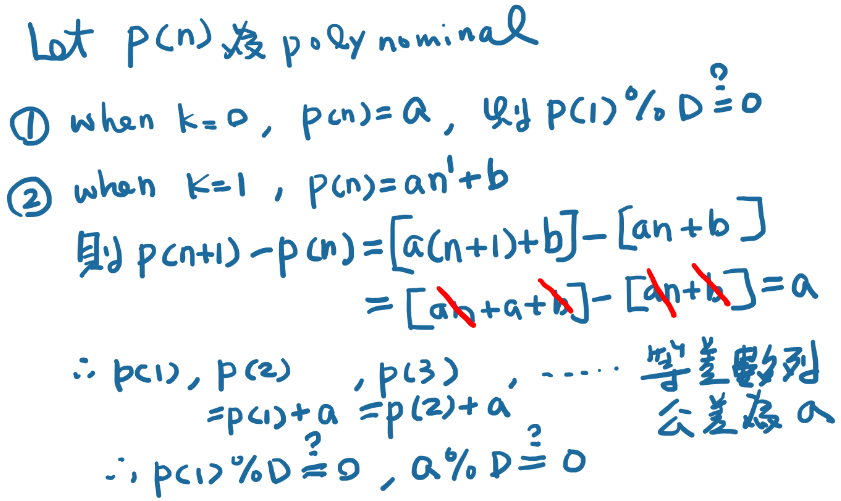 Let p(n) 為 polynominal
① when k=0, p(n)=a, 則 P(1) % D ≟ 0
② when k=1, p(n)=an¹+b
則 p(n+1)-p(n)=[a(n+1)+b]-[an+b]
=[an+a+b]-[an+b]=a
∴ p(1), p(2), p(3), ...... 等差數列
=p(1)+a =p(2)+a 公差為 a
∴ p(1)%D ≟ 0, a%D ≟ 0